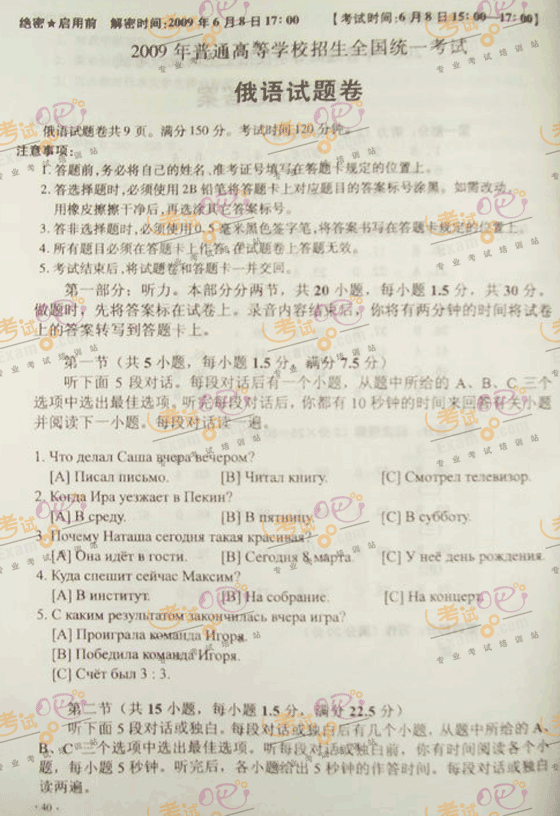 绝密★启用前 解密时间:2009年6月8日17:00 【考试时间:6月8日15:00—17:00】
2009年普通高等学校招生全国统一考试
俄语试题卷
俄语试题卷共9页。满分150分。考试时间120分钟。
注意事项:
1. 答题前,务必将自己的姓名、准考证号填写在答题卡规定的位置上。
2. 答选择题时,必须使用2B铅笔将答题卡上对应题目的答案标号涂黑。如需改动,
用橡皮擦擦干净后,再选涂其它答案标号。
3. 答非选择题时,必须使用0.5毫米黑色签字笔,将答案书写在答题卡规定的位置上。
4. 所有题目必须在答题卡上作答,在试题卷上答题无效。
5. 考试结束后,将试题卷和答题卡一并交回。
第一部分:听力。本部分分两节,共20小题,每小题1.5分,共30分。
做题时,先将答案标在试卷上。录音内容结束后,你将有两分钟的时间将试卷
上的答案转写到答题卡上。
第一节(共5小题,每小题1.5分,满分7.5分)
听下面5段对话。每段对话后有一个小题,从题中所给的A、B、C三个
选项中选出最佳选项。听完每段对话后,你都有10秒钟的时间来回答有关小题
并阅读下一小题。每段对话读一遍。
1. Что делал Саша вчера вечером?
[A] Писал письмо. [B] Читал книгу. [C] Смотрел телевизор.
2. Когда Ира уезжает в Пекин?
[A] В среду. [B] В пятницу. [C] В субботу.
3. Почему Наташа сегодня такая красивая?
[A] Она идёт в гости. [B] Сегодня 8 марта. [C] У неё день рождения.
4. Куда спешит сейчас Максим?
[A] В институт. [B] На собрание. [C] На концерт.
5. С каким результатом закончилась вчера игра?
[A] Проиграла команда Игоря.
[B] Победила команда Игоря.
[C] Счёт был 3 : 3.
第二节(共15小题,每小题1.5分,满分22.5分)
听下面5段对话或独白。每段对话或独白后有几个小题,从题中所给的A、
B、C三个选项中选出最佳选项。听每段对话或独白前,你有时间阅读各个小
题,每小题5秒钟。听完后,各小题给出5秒钟的作答时间。每段对话或独白
读两遍。
· 40 ·